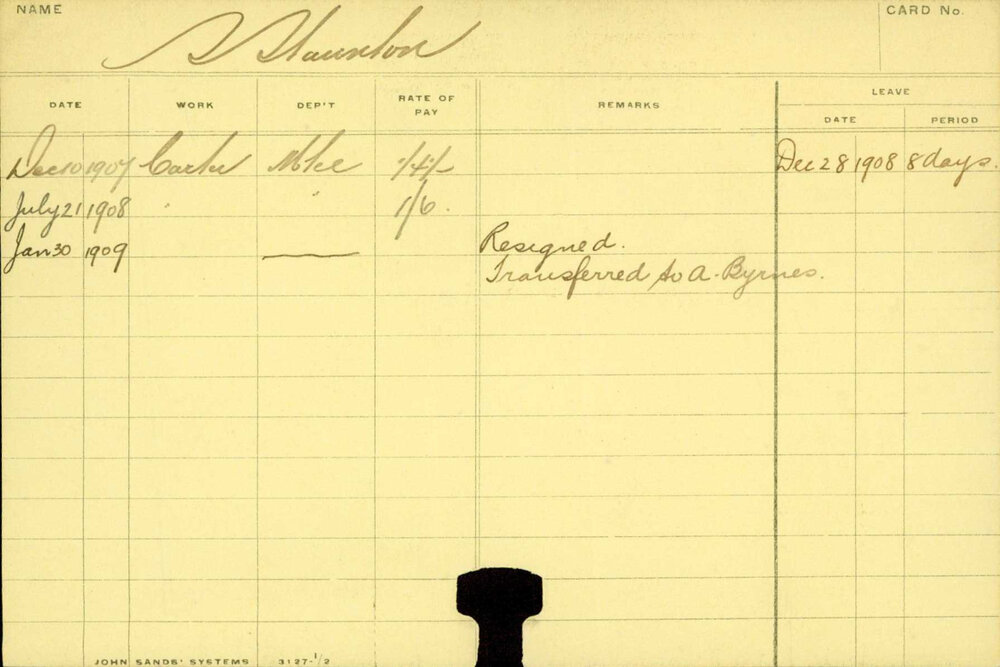 NAME
CARD No.
S Staunton
DATE WORK DEP'T RATE OF PAY REMARKS LEAVE
DATE PERIOD
Dec 10 1907 Carter 1/4 Dec 28 1908 8 days.
July 21 1908 " " 1/6.
Jan 30 1909 Resigned.
Transferred to A. Byrnes.
JOHN SANDS' SYSTEMS 3127-1/2